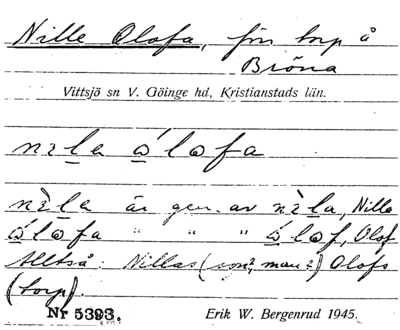 Nille Olofa, förr torp å
Bröna
Vittsjö sn V. Göinge hd, Kristianstads län.
nɪla ólofa
nɪ̀la är gen. av nɪ̀la, Nilla
ólofa " " " ólof, Olof
Alltså: Nillas (son?, man?) Olofs
(torp).
Nr 5393.
Erik W. Bergenrud 1945.